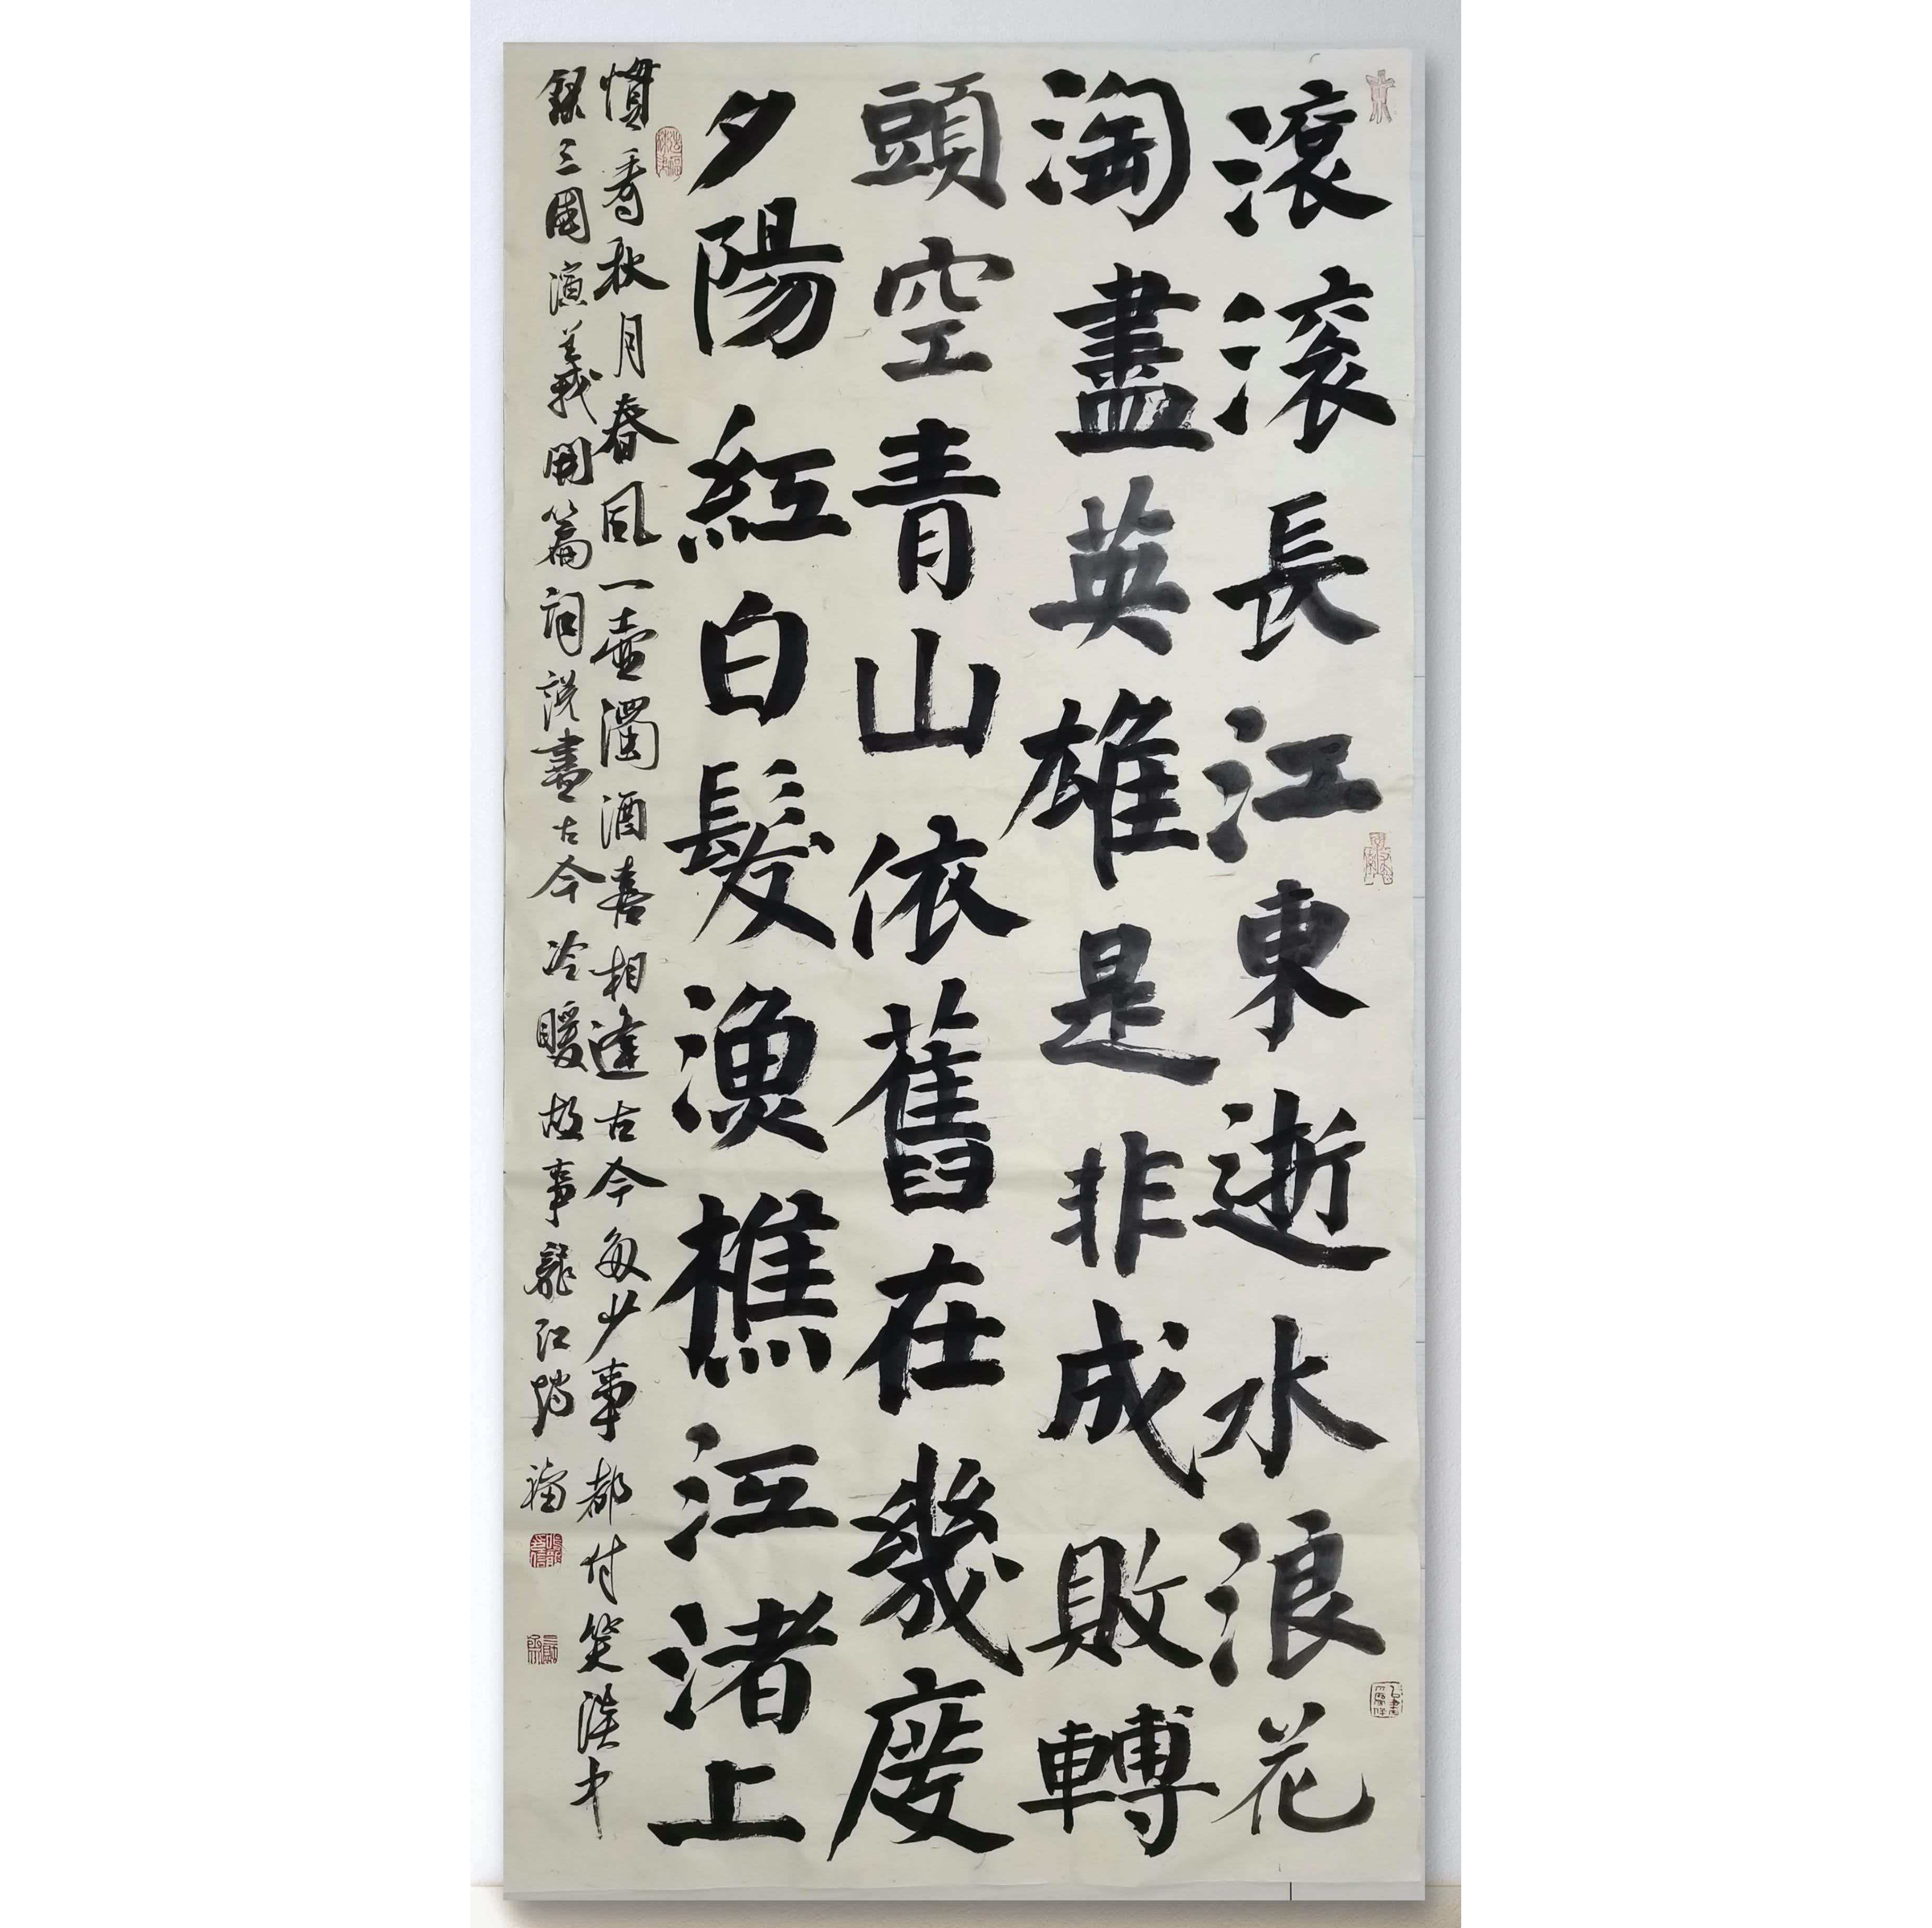 滾滾長江東逝水浪花
淘盡英雄是非成敗轉
頭空青山依舊在幾度
夕陽紅白髮漁樵江渚上
慣看秋月春風一壺濁酒喜相逢古今多少事都付笑談中
錄三國演義開篇詞說盡古今冷暖故事龍江